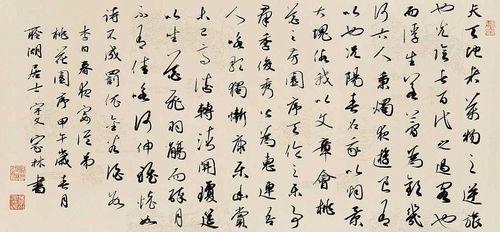 夫天地者萬物之逆旅
也光陰者百代之過客也
而浮生若夢為歡幾
何古人秉燭夜遊良有
以也況陽春召我以煙景
大塊假我以文章會桃
花之芳園序天倫之樂事
群季俊秀以為惠連吾
人詠歌獨慚康樂幽賞
未已高談轉清開瓊筵
以坐花飛羽觴而醉月
不有佳詠何伸雅懷如
詩不成罰依金谷酒數
李白春夜宴從弟
桃花園序甲午歲春月
湖居士宇文家林書